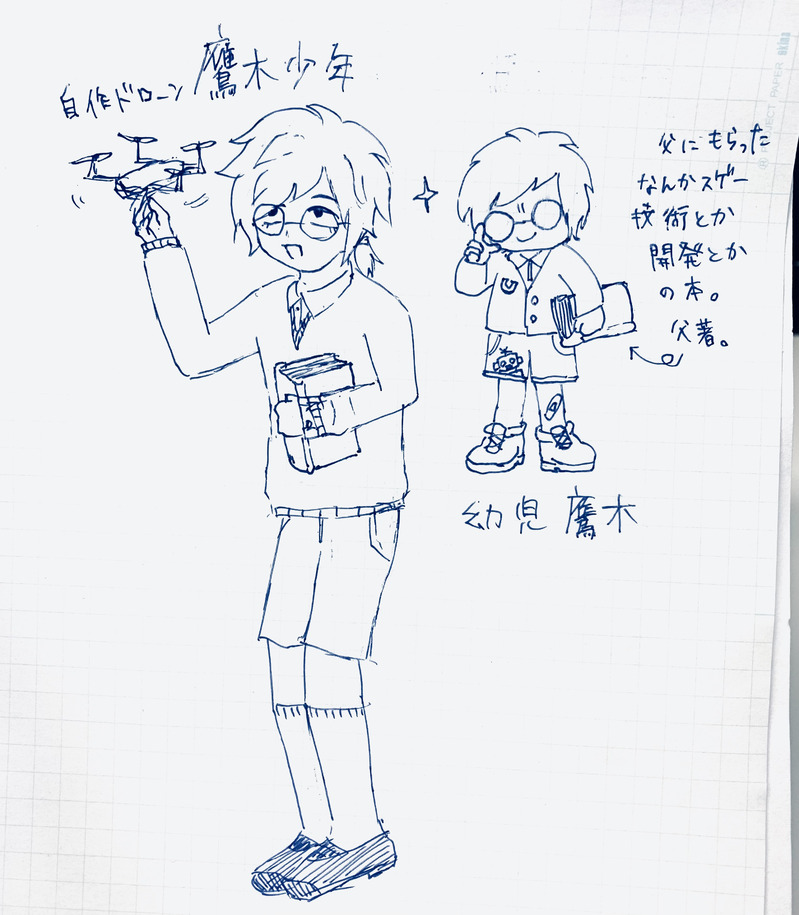 鷹木少年
自作ドローン
父にもらった
なんかスゲー
技術とか
開発とか
の本。
父著。
幼児 鷹木
PROJECT PAPER okina